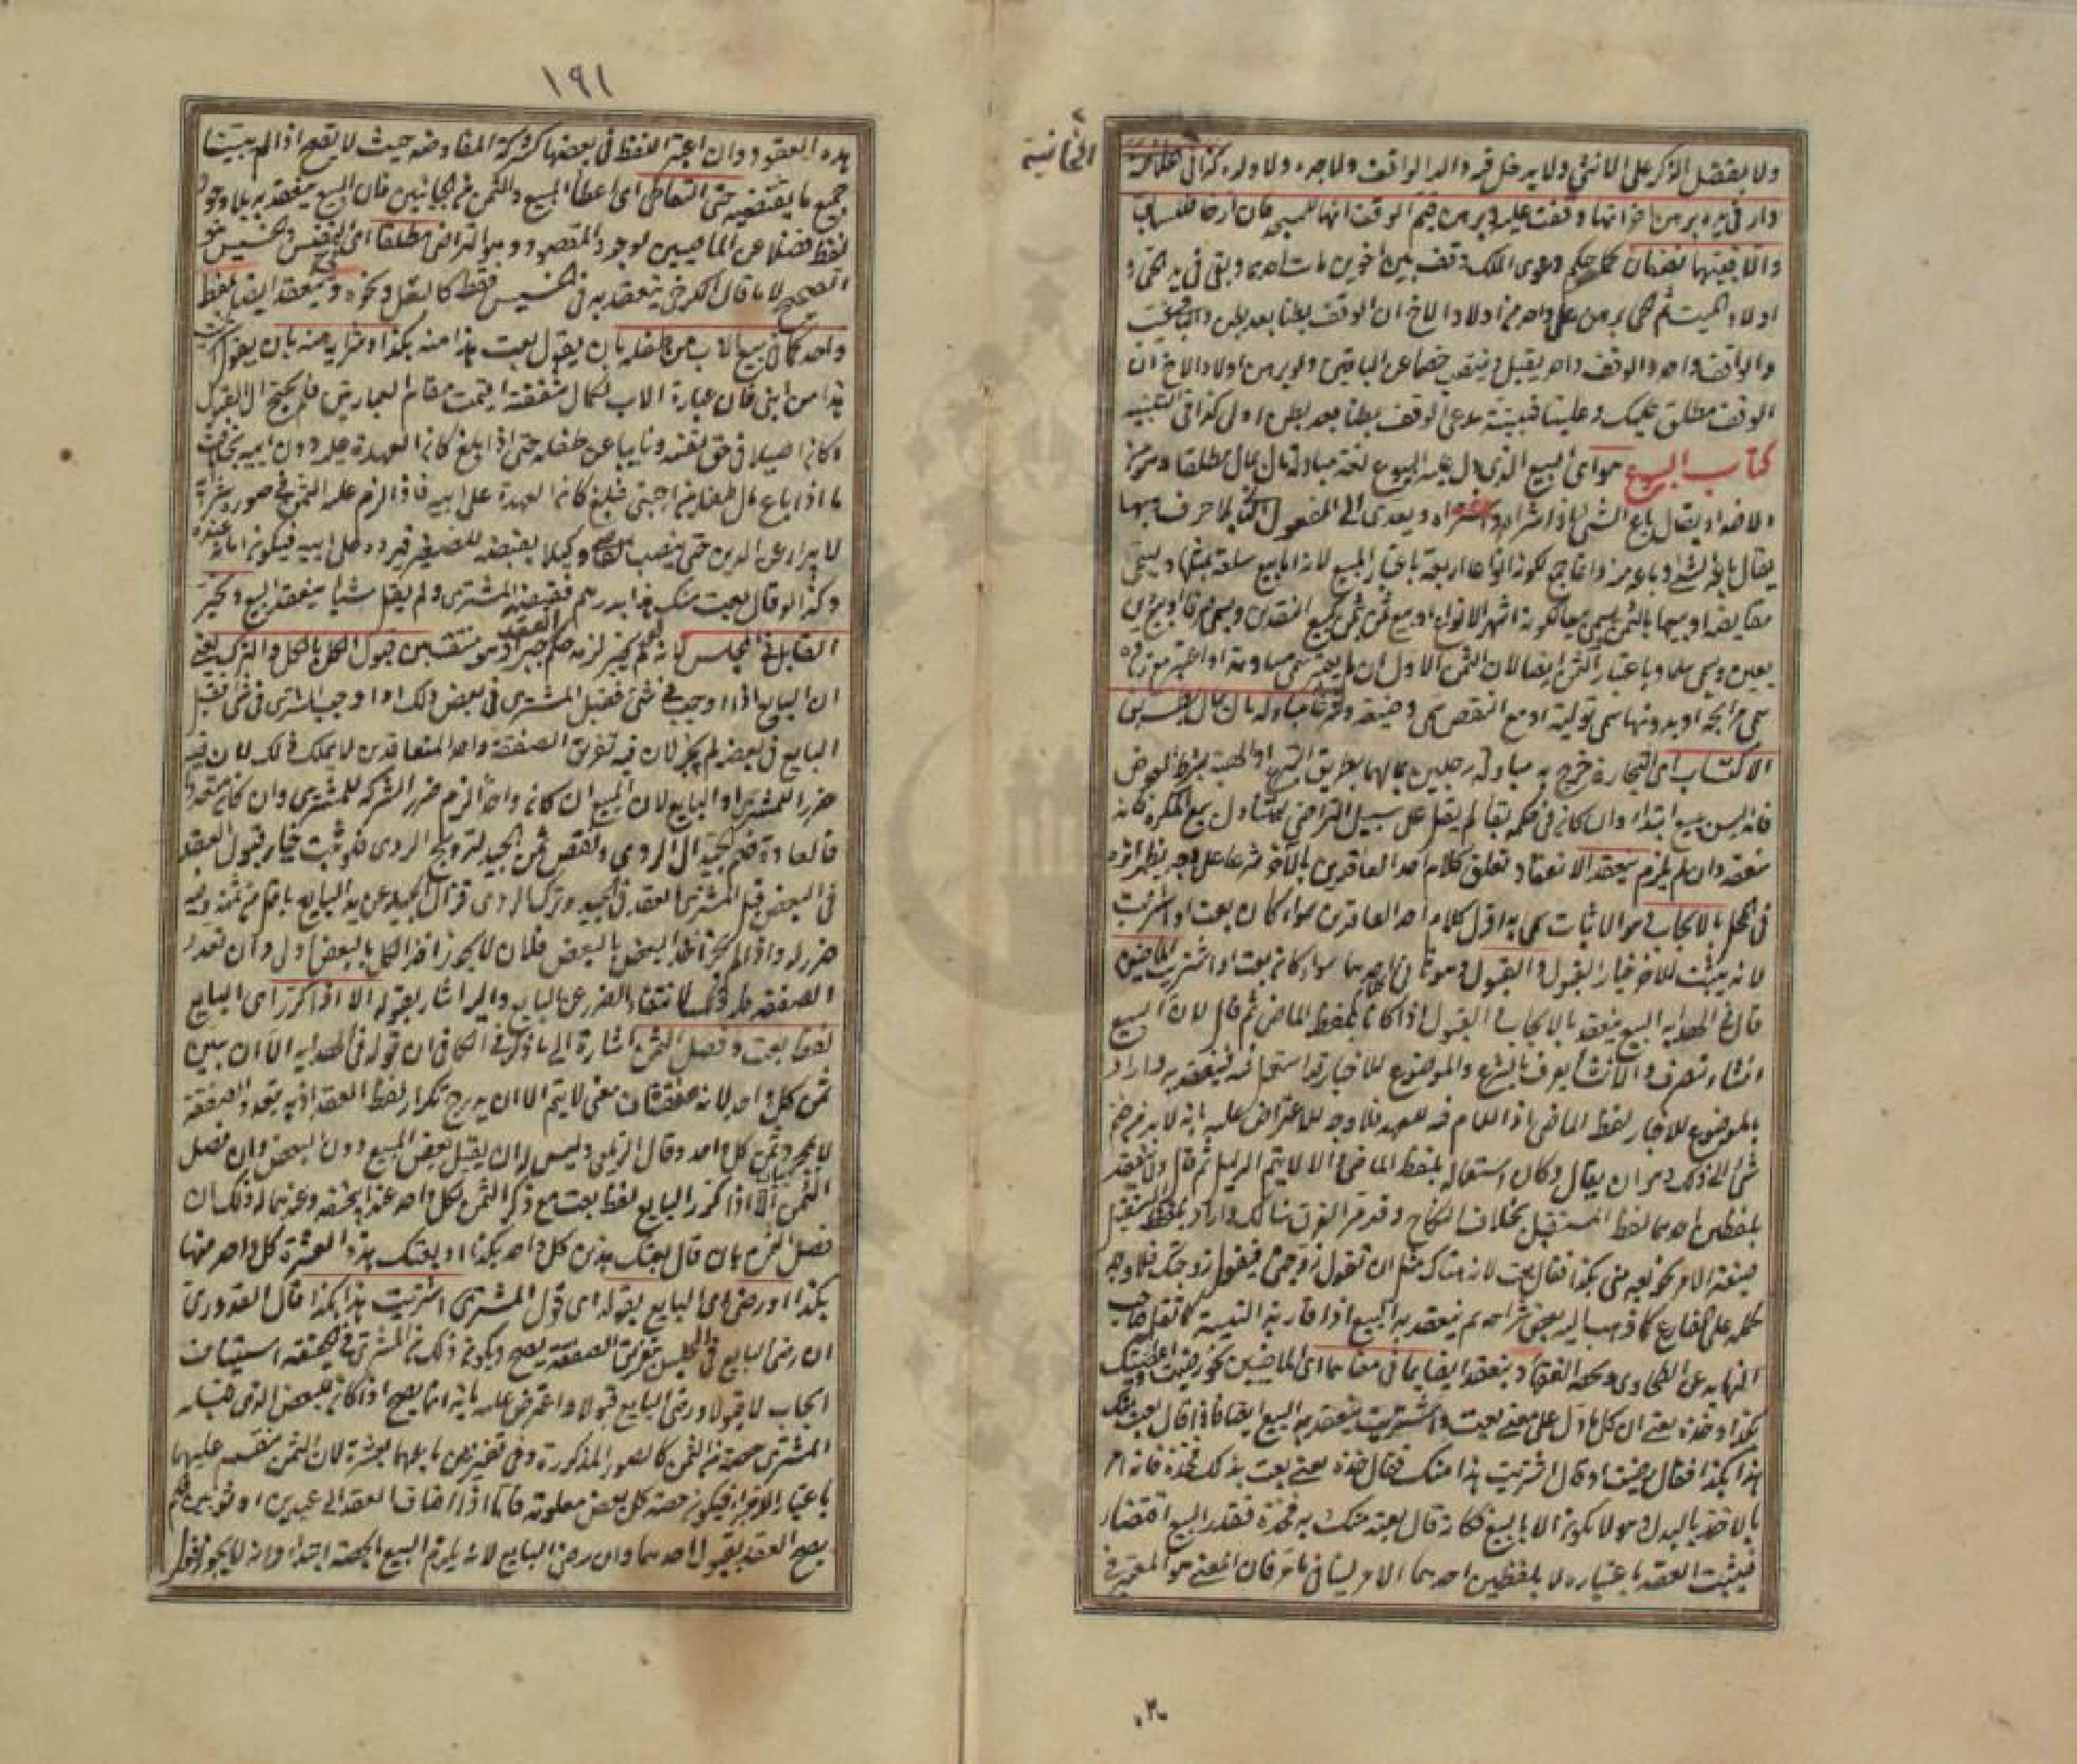 الخانية
ولا يفضل الذكر على الانثى ولا يدخل فيه والد الواقف ولا جده ولا ولده كذا في
دار في يده برهن انها وقفت عليه وبرهن قيم الوقف انها للمسجد فان ارخا فللسابق
والا فبينهما نصفان دعوى الملك وقف بين اخوين مات احدهما وبقي في يد الحي و
اولاد الميت ثم الحي برهن على واحد من اولاد الاخ ان الوقف بطنا بعد بطن والباقي غيب
والواقف واحد والوقف واحد يقبل وينتصب خصما عن الباقين ولو برهن اولاد الاخ ان
الوقف مطلق عليك وعلينا فبينة مدعي الوقف بطنا بعد بطن اولى كذا في القنية
كتاب البيوع هو اي البيع الذي دل عليه البيوع لغة مبادلة مال بمال مطلقا وهو من
الاضداد يقال باع الشيء اذا شراه او اشتراه ويعدى الى المفعول الثاني بلا حرف وبها
يقال باعه الشيء وباعه منه وانما جمع لكونه انواعا اربعة باعتبار المبيع لانه اما بيع سلعة بمثلها ويسمى
مقايضة او بيعها بالثمن ويسمى بيعا لكونه اشهر الانواع او بيع ثمن بثمن كبيع النقدين ويسمى صرفا او بيع دين
بعين ويسمى سلما وباعتبار الثمن ايضا لان الثمن الاول ان لم يعتبر سمى مساومة او اعتبر مع زيادة
سمى مرابحة او بدونها سمى تولية او مع النقص سمى وضيعة وشرعا مبادلة مال بمال بطريق
الاكتساب اي التجارة خرج به مبادلة رجلين بمالهما بطريق التبرع او الهبة بشرط العوض
فانه ليس ببيع ابتداء وان كان في حكمه بقاء لم يقل على سبيل التراضي ليتناول بيع المكره فانه
منعقد وان لم يلزم ينعقد الانعقاد تعلق كلام احد العاقدين بالاخر شرعا على وجه يظهر اثره
في المحل بالايجاب هو الاثبات سمى به اول كلام احد العاقدين سواء كان بعت او اشتريت
لانه يثبت للاخر خيار القبول والقبول وهو ثاني كلام احدهما سواء كان بعت او اشتريت الماضيين
قال في الهداية البيع ينعقد بالايجاب والقبول اذا كانا بلفظ الماضي ثم قال لان البيع
انشاء تصرف والانشاء يعرف بالشرع والموضوع للاخبار قد استعمل فيه فينعقد به واراد
بالموضوع للاخبار لفظ الماضي اذ اللام فيه للعهد فلا وجه للاعتراض عليه بانه لا بد من ضم
شيء الى ذلك وهو ان يقال وكان استعماله بلفظ الماضي والا لا يتم الدليل ثم قال ولا ينعقد
بلفظين احدهما لفظ المستقبل بخلاف النكاح وقد مر الفرق هناك واراد بلفظ المستقبل
صيغة الامر نحو بعه مني بكذا فقال بعت لانه هناك مثل ان تقول زوجني فيقول زوجتك فلا وجه
لحمله على المضارع كما ذهب اليه بعض شراحه ثم ينعقد به البيع اذا قارنه النية كما نقل صاحب
النهاية عن الطحاوي وتحفة الفقهاء وينعقد ايضا بما في معناهما اي الماضيين نحو رضيت واعطيتك
بكذا وخذه يعني ان كل ما دل على معنى بعت واشتريت ينعقد به البيع ايضا فاذا قال بعت منك
هذا بكذا فقال رضيت او قال اشتريت هذا منك فقال خذه يعني بعت بذلك فخذه فانه امر
بالاخذ بالبدل وهو لا يكون الا بالبيع فكانه قال بعته منك به فخذه فقدر البيع اقتضاء
فيثبت العقد باعتباره لا بلفظين احدهما الامر ليناقي ما مر فان المعنى هو المعتبر في
١٩١
هذه العقود وان اعتبر اللفظ في بعضها كشركة المفاوضة حيث لا تصح اذا لم يبينا
جميع ما يقتضيه حتى التعاطي اي اعطاء المبيع والثمن من الجانبين فان البيع ينعقد به بلا وجود
لفظ فضلا عن الماضيين لوجود المقصود وهو التراضي مطلقا اي في النفيس والخسيس هو
الصحيح لا ما قال الكرخي ينعقد به في الخسيس فقط كالبقل ونحوه وينعقد ايضا بلفظ
واحد كما في بيع الاب من طفله بان يقول بعت هذا منه بكذا وشرائه منه بان يقول اشتريت
هذا من ابني فان عبارة الاب لكمال شفقته اقيمت مقام العبارتين فلم يحتج الى القبول
وكان اصيلا في حق نفسه ونايبا عن طفله حتى اذا بلغ كان العهدة عليه دون ابيه بخلاف
ما اذا باع مال طفله من اجنبي فبلغ كان العهدة على ابيه فاذا لزم عليه الثمن في صورة شرائه
لا يبرأ عن الدين حتى ينصب القاضي وكيلا يقبضه للصغير فيرده على ابيه فيكون امانة عنده
وكذا لو قال بعت منك هذا بدرهم فقبضه المشتري ولم يقل شيئا ينعقد البيع وخير
القابل في المجلس لانه لو لم يخير لزمه حكم العقد جبرا وهو منتف بين قبول الكل بالكل والترك يعني
ان البايع اذا اوجب في شيء فقبل المشتري في بعض ذلك او اوجب المشتري في شيء فقبل
البايع في بعض لم يجز لان فيه تفريق الصفقة واحد المتعاقدين لا يملك ذلك لان فيه
ضررا للمشتري او البايع لان المبيع ان كان واحدا لزم ضرر الشركة للمشتري وان كان متعددا
فالعادة ضم الجيد الى الردي ونقص ثمن الجيد لترويج الردي فلو ثبت خيار قبول العقد
في البعض قبل المشتري العقد في الجيد وترك الردي فزال الجيد عن يد البايع باقل من ثمنه وفيه
ضرر له واذا لم يجز اخذ البعض بالبعض فلان لا يجوز اخذ الكل بالبعض اولى وان تعدد
الصفقة لانتفاء الضرر عن البايع واليه اشار بقوله الا اذا كرر اي البايع
لفظ بعت وفصل الثمن اشارة الى ما ذكر في الكافي ان قوله في الهداية الا ان بين
ثمن كل واحد لانه صفقات معنى لا يتم الا ان يدرج تكرار لفظ العقد اذ به يتعدد الصفقة
لا بمجرد بيان ثمن كل واحد وقال الزيلعي وليس له ان يقبل بعض المبيع دون البعض وان فصل
الثمن الا اذا كرر البايع لفظ بعت مع ذكر الثمن لكل واحد عند ابي حنيفة وعندهما له ذلك ان
فصل الثمن بان قال بعتك هذين كل واحد بكذا او بعتك هذه العشرة كل واحد منها
بكذا او رضي اي البايع بقوله اي قول المشتري اشتريت هذا بكذا قال القدوري
ان رضي البايع في المجلس بتفريق الصفقة يصح ويكون ذلك من المشتري في الحقيقة استيناف
ايجاب لا قبولا ورضى البايع قبولا واعترض عليه بانه انما يصح اذا كان للبعض الذي قبله
المشتري حصة من الثمن كالصور المذكورة وفي قفيزين باعهما بعشرة لان الثمن منقسم عليهما
باعتبار الاجزاء فيكون حصة كل بعض معلومة فاما اذا اضاف العقد الى عبدين او ثوبين لم
يصح العقد بقبول احدهما وان رضي البايع لانه يلزم البيع بالحصة ابتداء وانه لا يجوز